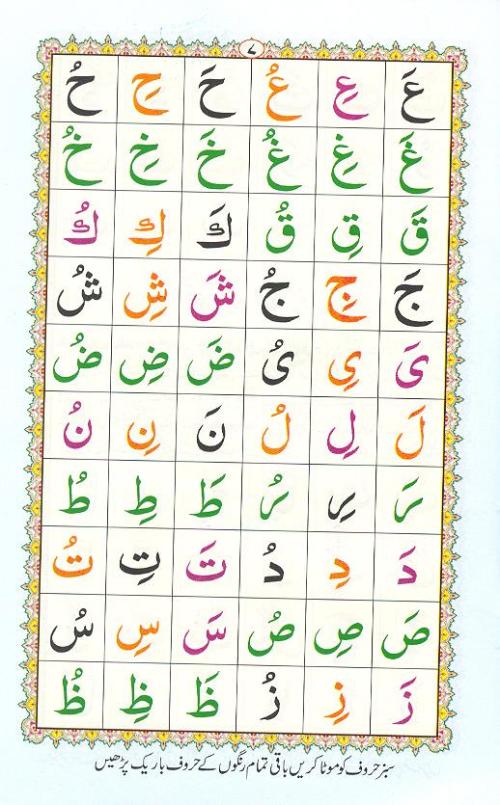 ۷
عَ عِ عُ حَ حِ حُ
غَ غِ غُ خَ خِ خُ
قَ قِ قُ كَ كِ كُ
جَ جِ جُ شَ شِ شُ
یَ یِ یُ ضَ ضِ ضُ
لَ لِ لُ نَ نِ نُ
رَ رِ رُ طَ طِ طُ
دَ دِ دُ تَ تِ تُ
صَ صِ صُ سَ سِ سُ
زَ زِ زُ ظَ ظِ ظُ
سبز حروف کو موٹا کریں باقی تمام رنگوں کے حروف باریک پڑھیں